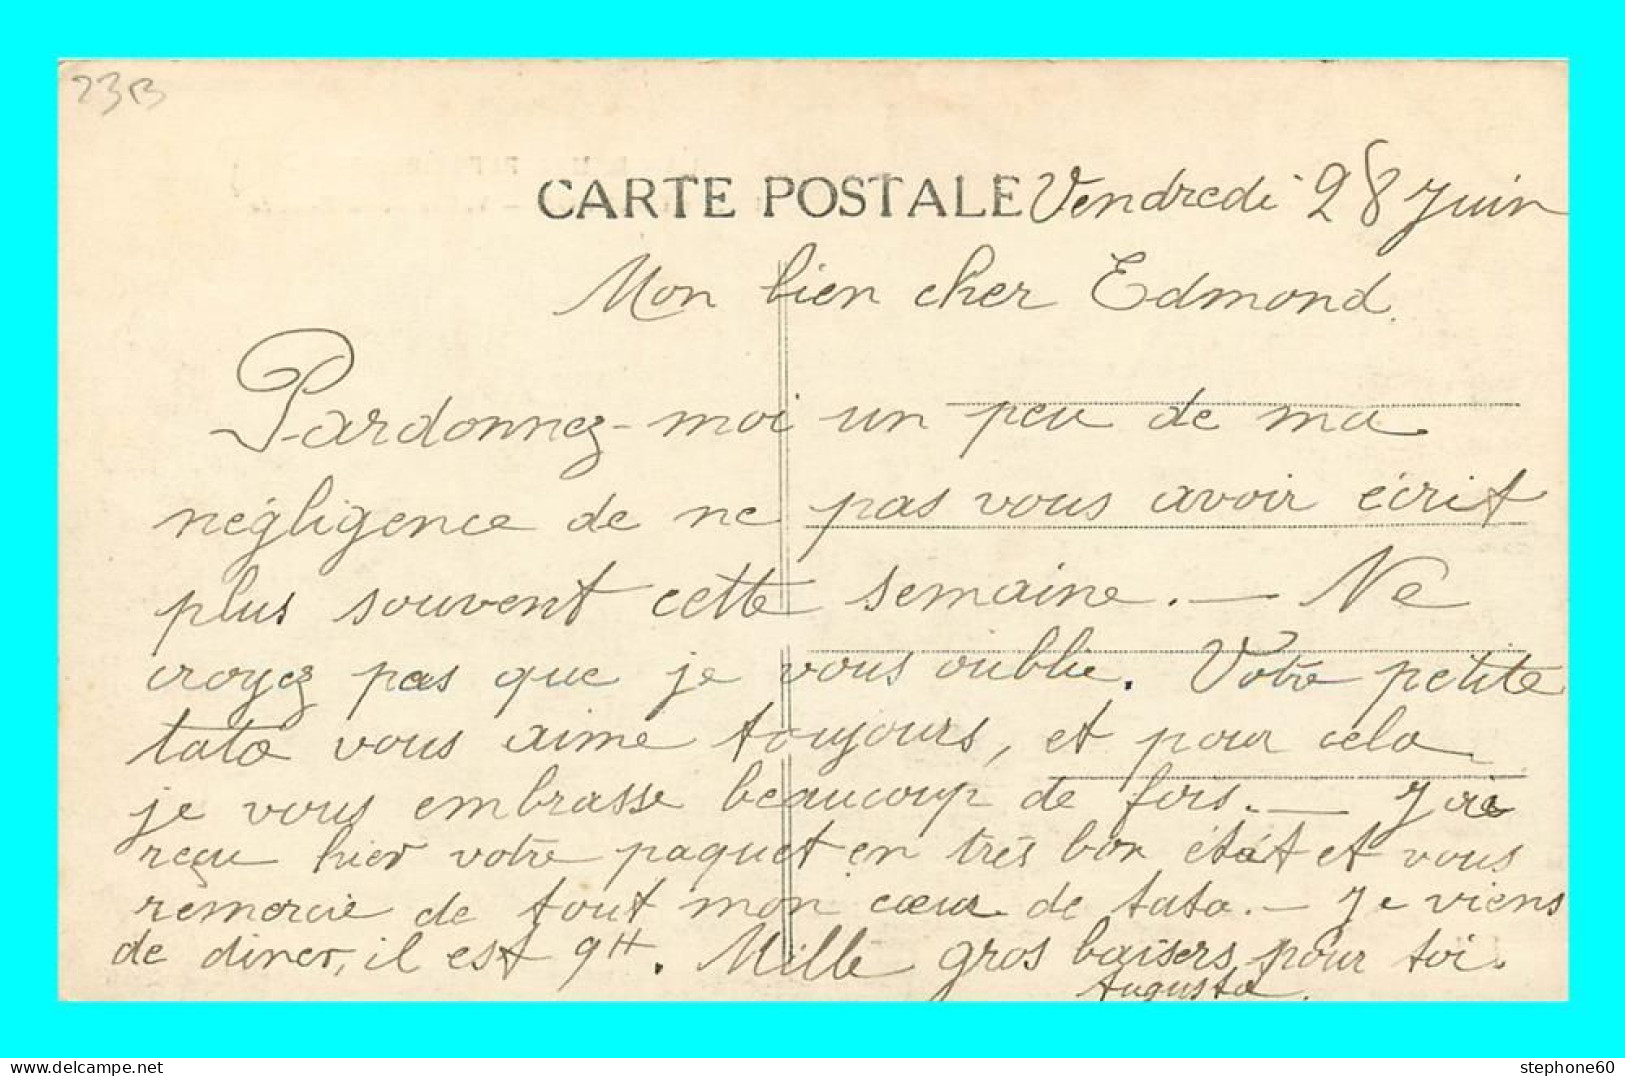 23B
CARTE POSTALE Vendredi 28 Juin
Mon bien cher Edmond.
Pardonnez-moi un peu de ma
négligence de ne pas vous avoir écrit
plus souvent cette semaine. — Ne
croyez pas que je vous oublie. Votre petite
tata vous aime toujours, et pour cela
je vous embrasse beaucoup de fois. — J'ai
reçu hier votre paquet en très bon état et vous
remercie de tout mon cœur de tata. — Je viens
de dîner, il est 9H. Mille gros baisers pour toi.
Augusta.
stephone60